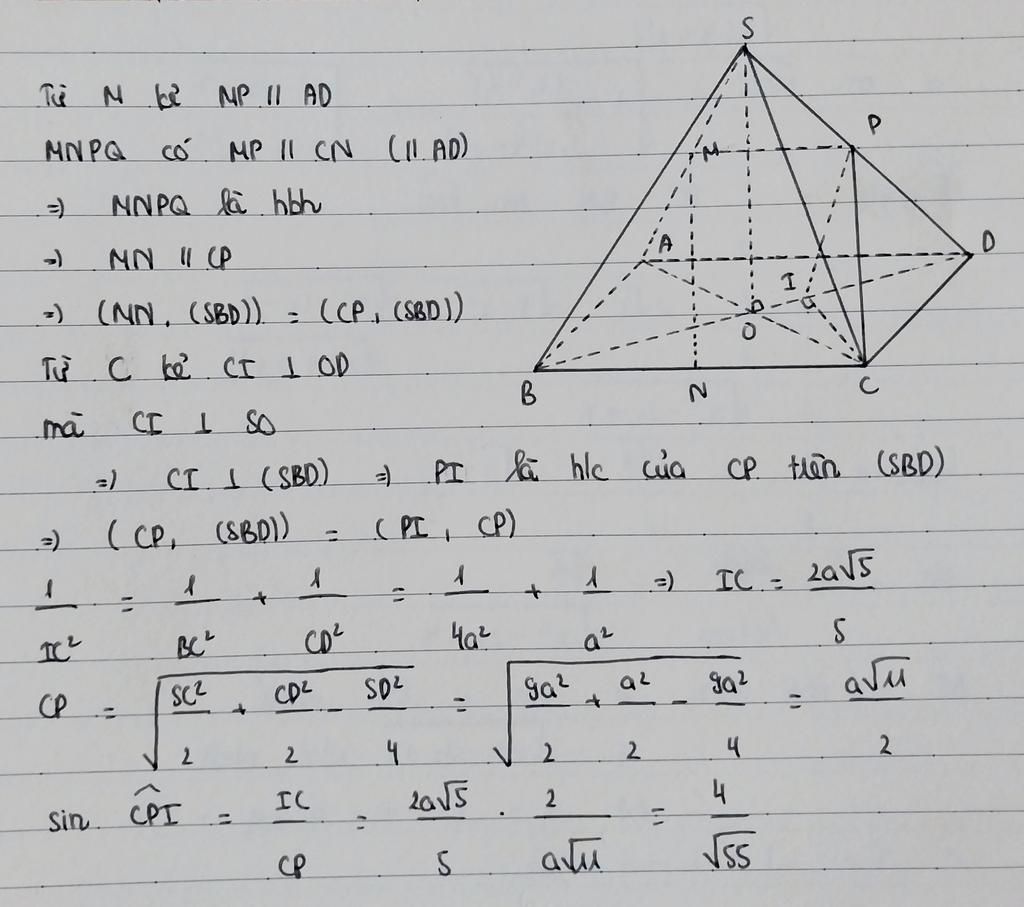 Từ M kẻ MP || AD
MNPQ có MP || CN (|| AD)
=) MNPQ là hbh
=) MN || CP
=) (MN, (SBD)) = (CP, (SBD))
Từ C kẻ CI ⊥ OD
mà CI ⊥ SO
=) CI ⊥ (SBD) =) PI là h/c của CP trên (SBD)
=) (CP, (SBD)) = (PI, CP)
1/IC² = 1/BC² + 1/CD² = 1/4a² + 1/a² =) IC = 2a√5/5
CP = √(SC²/2 + CD²/2 - SD²/4) = √(9a²/2 + a²/2 - 9a²/4) = a√11/2
sin ĈPI = IC/CP = 2a√5/5 . 2/a√11 = 4/√55
S
P
M
A
D
I
O
B
N
C